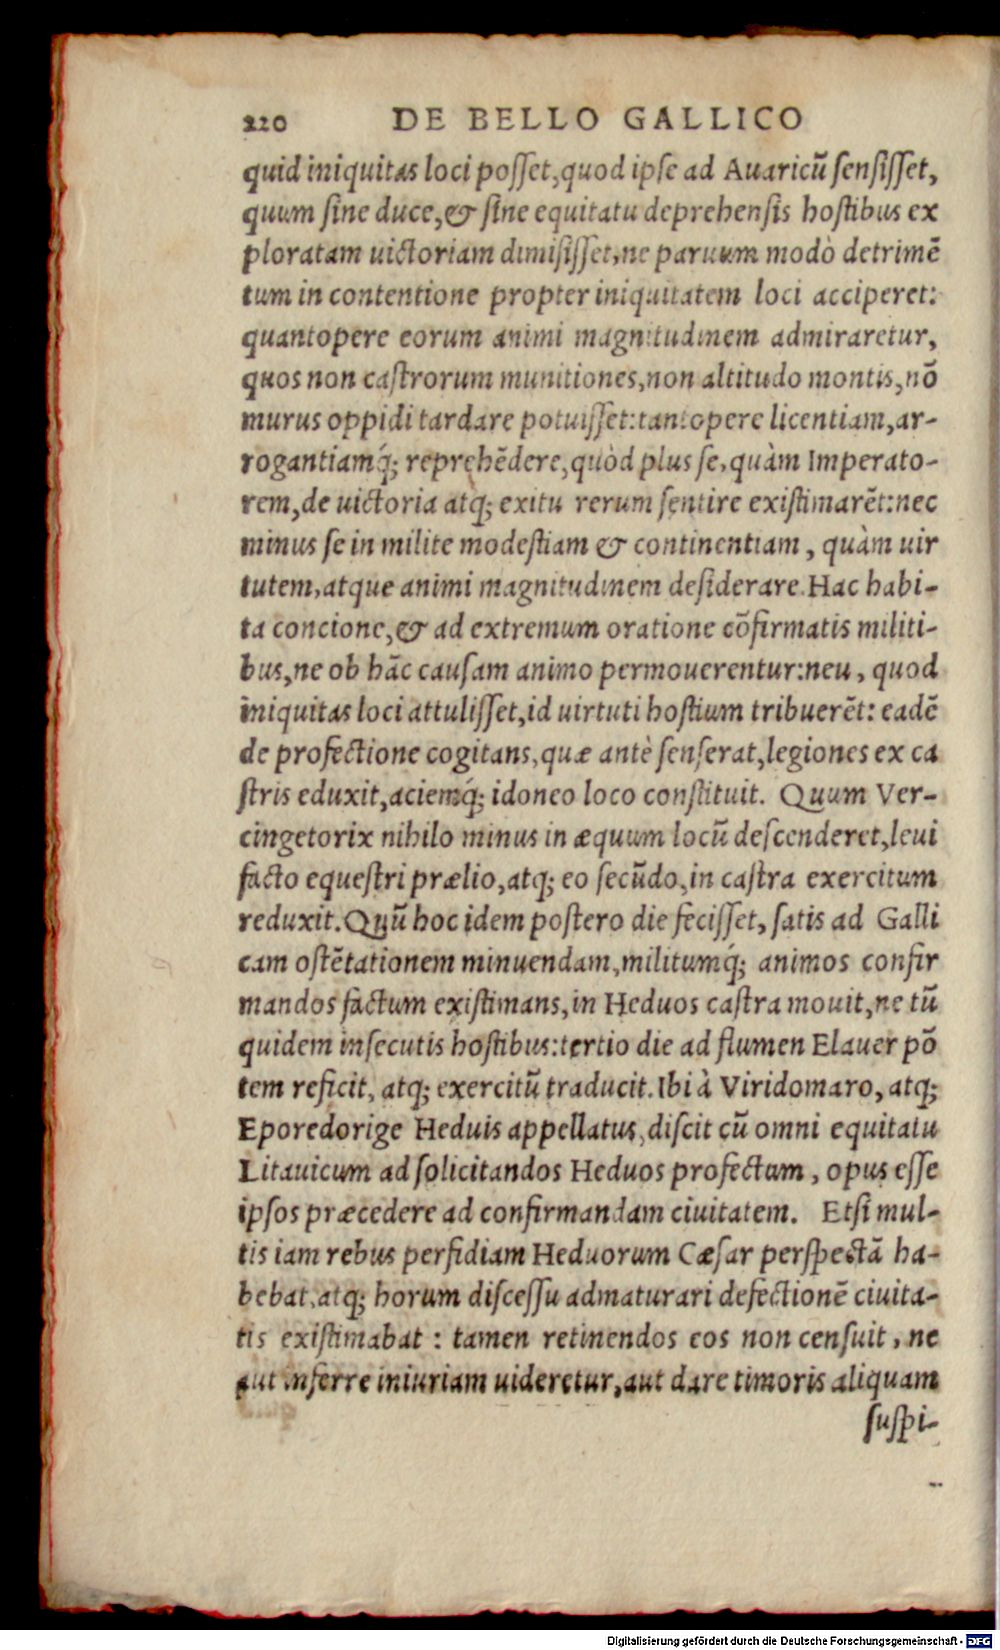 220 DE BELLO GALLICO
quid iniquitas loci posset, quod ipse ad Auaricū sensisset,
quum sine duce, & sine equitatu deprehensis hostibus ex
ploratam uictoriam dimisisset, ne paruum modò detrimē
tum in contentione propter iniquitatem loci acciperet:
quantopere eorum animi magnitudinem admiraretur,
quos non castrorum munitiones, non altitudo montis, nō
murus oppidi tardare potuisset: tantopere licentiam, ar-
rogantiamq́; reprehēdere, quòd plus se, quàm Imperato-
rem, de uictoria atq; exitu rerum sentire existimarēt: nec
minus se in milite modestiam & continentiam, quàm uir
tutem, atque animi magnitudinem desiderare. Hac habi-
ta concione, & ad extremum oratione cōfirmatis militi-
bus, ne ob hāc causam animo permouerentur: neu, quod
iniquitas loci attulisset, id uirtuti hostium tribuerēt: eadē
de profectione cogitans, quæ antè senserat, legiones ex ca
stris eduxit, aciemq́; idoneo loco constituit. Quum Ver-
cingetorix nihilo minus in æquum locū descenderet, leui
facto equestri prælio, atq; eo secūdo, in castra exercitum
reduxit. Quū hoc idem postero die fecisset, satis ad Galli
cam ostētationem minuendam, militumq́; animos confir
mandos factum existimans, in Heduos castra mouit, ne tū
quidem insecutis hostibus: tertio die ad flumen Elauer pō
tem reficit, atq; exercitū traducit. Ibi à Viridomaro, atq;
Eporedorige Heduis appellatus, discit cū omni equitatu
Litauicum ad solicitandos Heduos profectum, opus esse
ipsos præcedere ad confirmandam ciuitatem. Etsi mul-
tis iam rebus perfidiam Heduorum Cæsar perspectā ha-
bebat, atq; horum discessu admaturari defectionē ciuita-
tis existimabat : tamen retinendos eos non censuit, ne
aut inferre iniuriam uideretur, aut dare timoris aliquam
suspi-
Digitalisierung gefördert durch die Deutsche Forschungsgemeinschaft - DFG